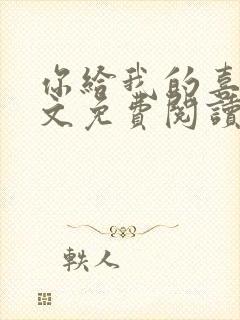 你給我的喜
文免費閱讀
軼人